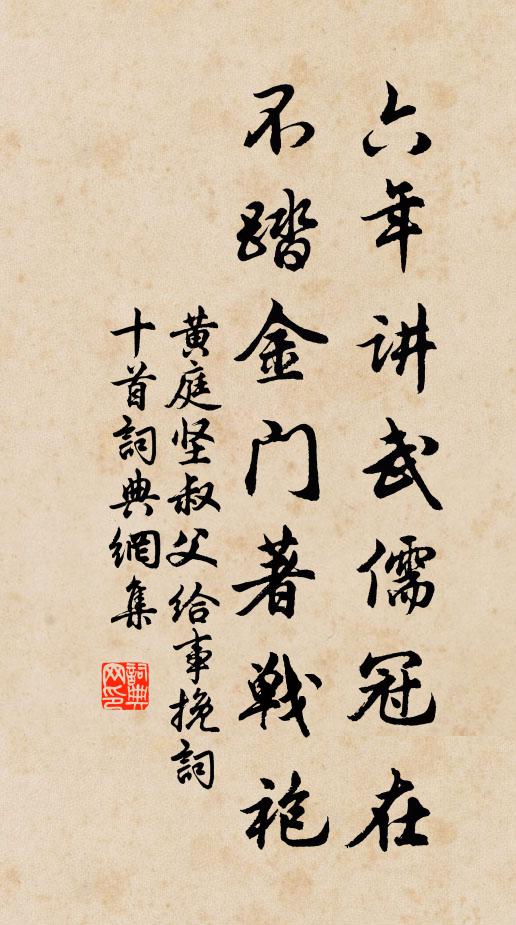 六年讲武儒冠在
不踏金门著戦袍
黄庭坚叔父给事挽詞
十首詞典網集
詞典
网印